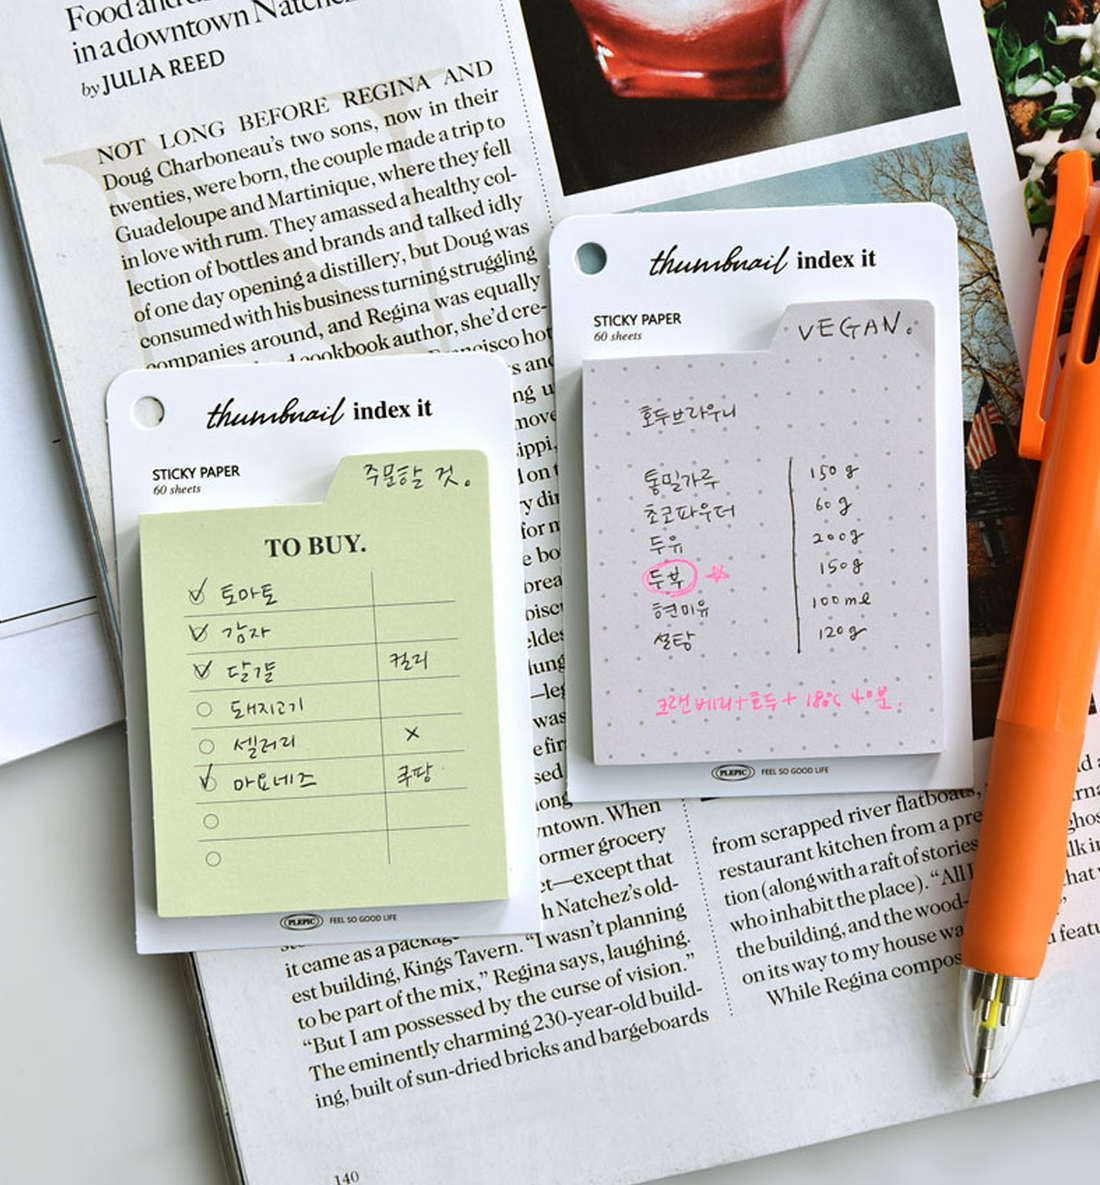 Food and
in a downtown Natchez
by JULIA REED
NOT LONG BEFORE REGINA AND
Doug Charboneau's two sons, now in their
twenties, were born, the couple made a trip to
Guadeloupe and Martinique, where they fell
in love with rum. They amassed a healthy col-
lection of bottles and brands and talked idly
of one day opening a distillery, but Doug was
consumed with his business turning struggling
companies around, and Regina was equally
cookbook author, she'd cre-
thumbnail index it
STICKY PAPER
60 sheets
주문할 것.
TO BUY.
토마토
감자
달걀 컬리
돼지고기
셀러리 ×
마요네즈 쿠팡
PLEPIC FEEL SO GOOD LIFE
thumbnail index it
STICKY PAPER
60 sheets
VEGAN.
호두브라우니
통밀가루 150g
초코파우더 60g
두유 200g
두부 150g
현미유 100ml
설탕 120g
크랜베리+호두+ 180℃ 40분.
PLEPIC FEEL SO GOOD LIFE
ntown. When
ormer grocery
ct—except that
h Natchez's old-
it came as a package
est building, Kings Tavern. "I wasn't planning
to be part of the mix," Regina says, laughing.
"But I am possessed by the curse of vision."
The eminently charming 230-year-old build-
ing, built of sun-dried bricks and bargeboards
from scrapped river flatboats,
restaurant kitchen from a pre
tion (along with a raft of stories
who inhabit the place). "All I
the building, and the wood-
on its way to my house wa
While Regina compos
140